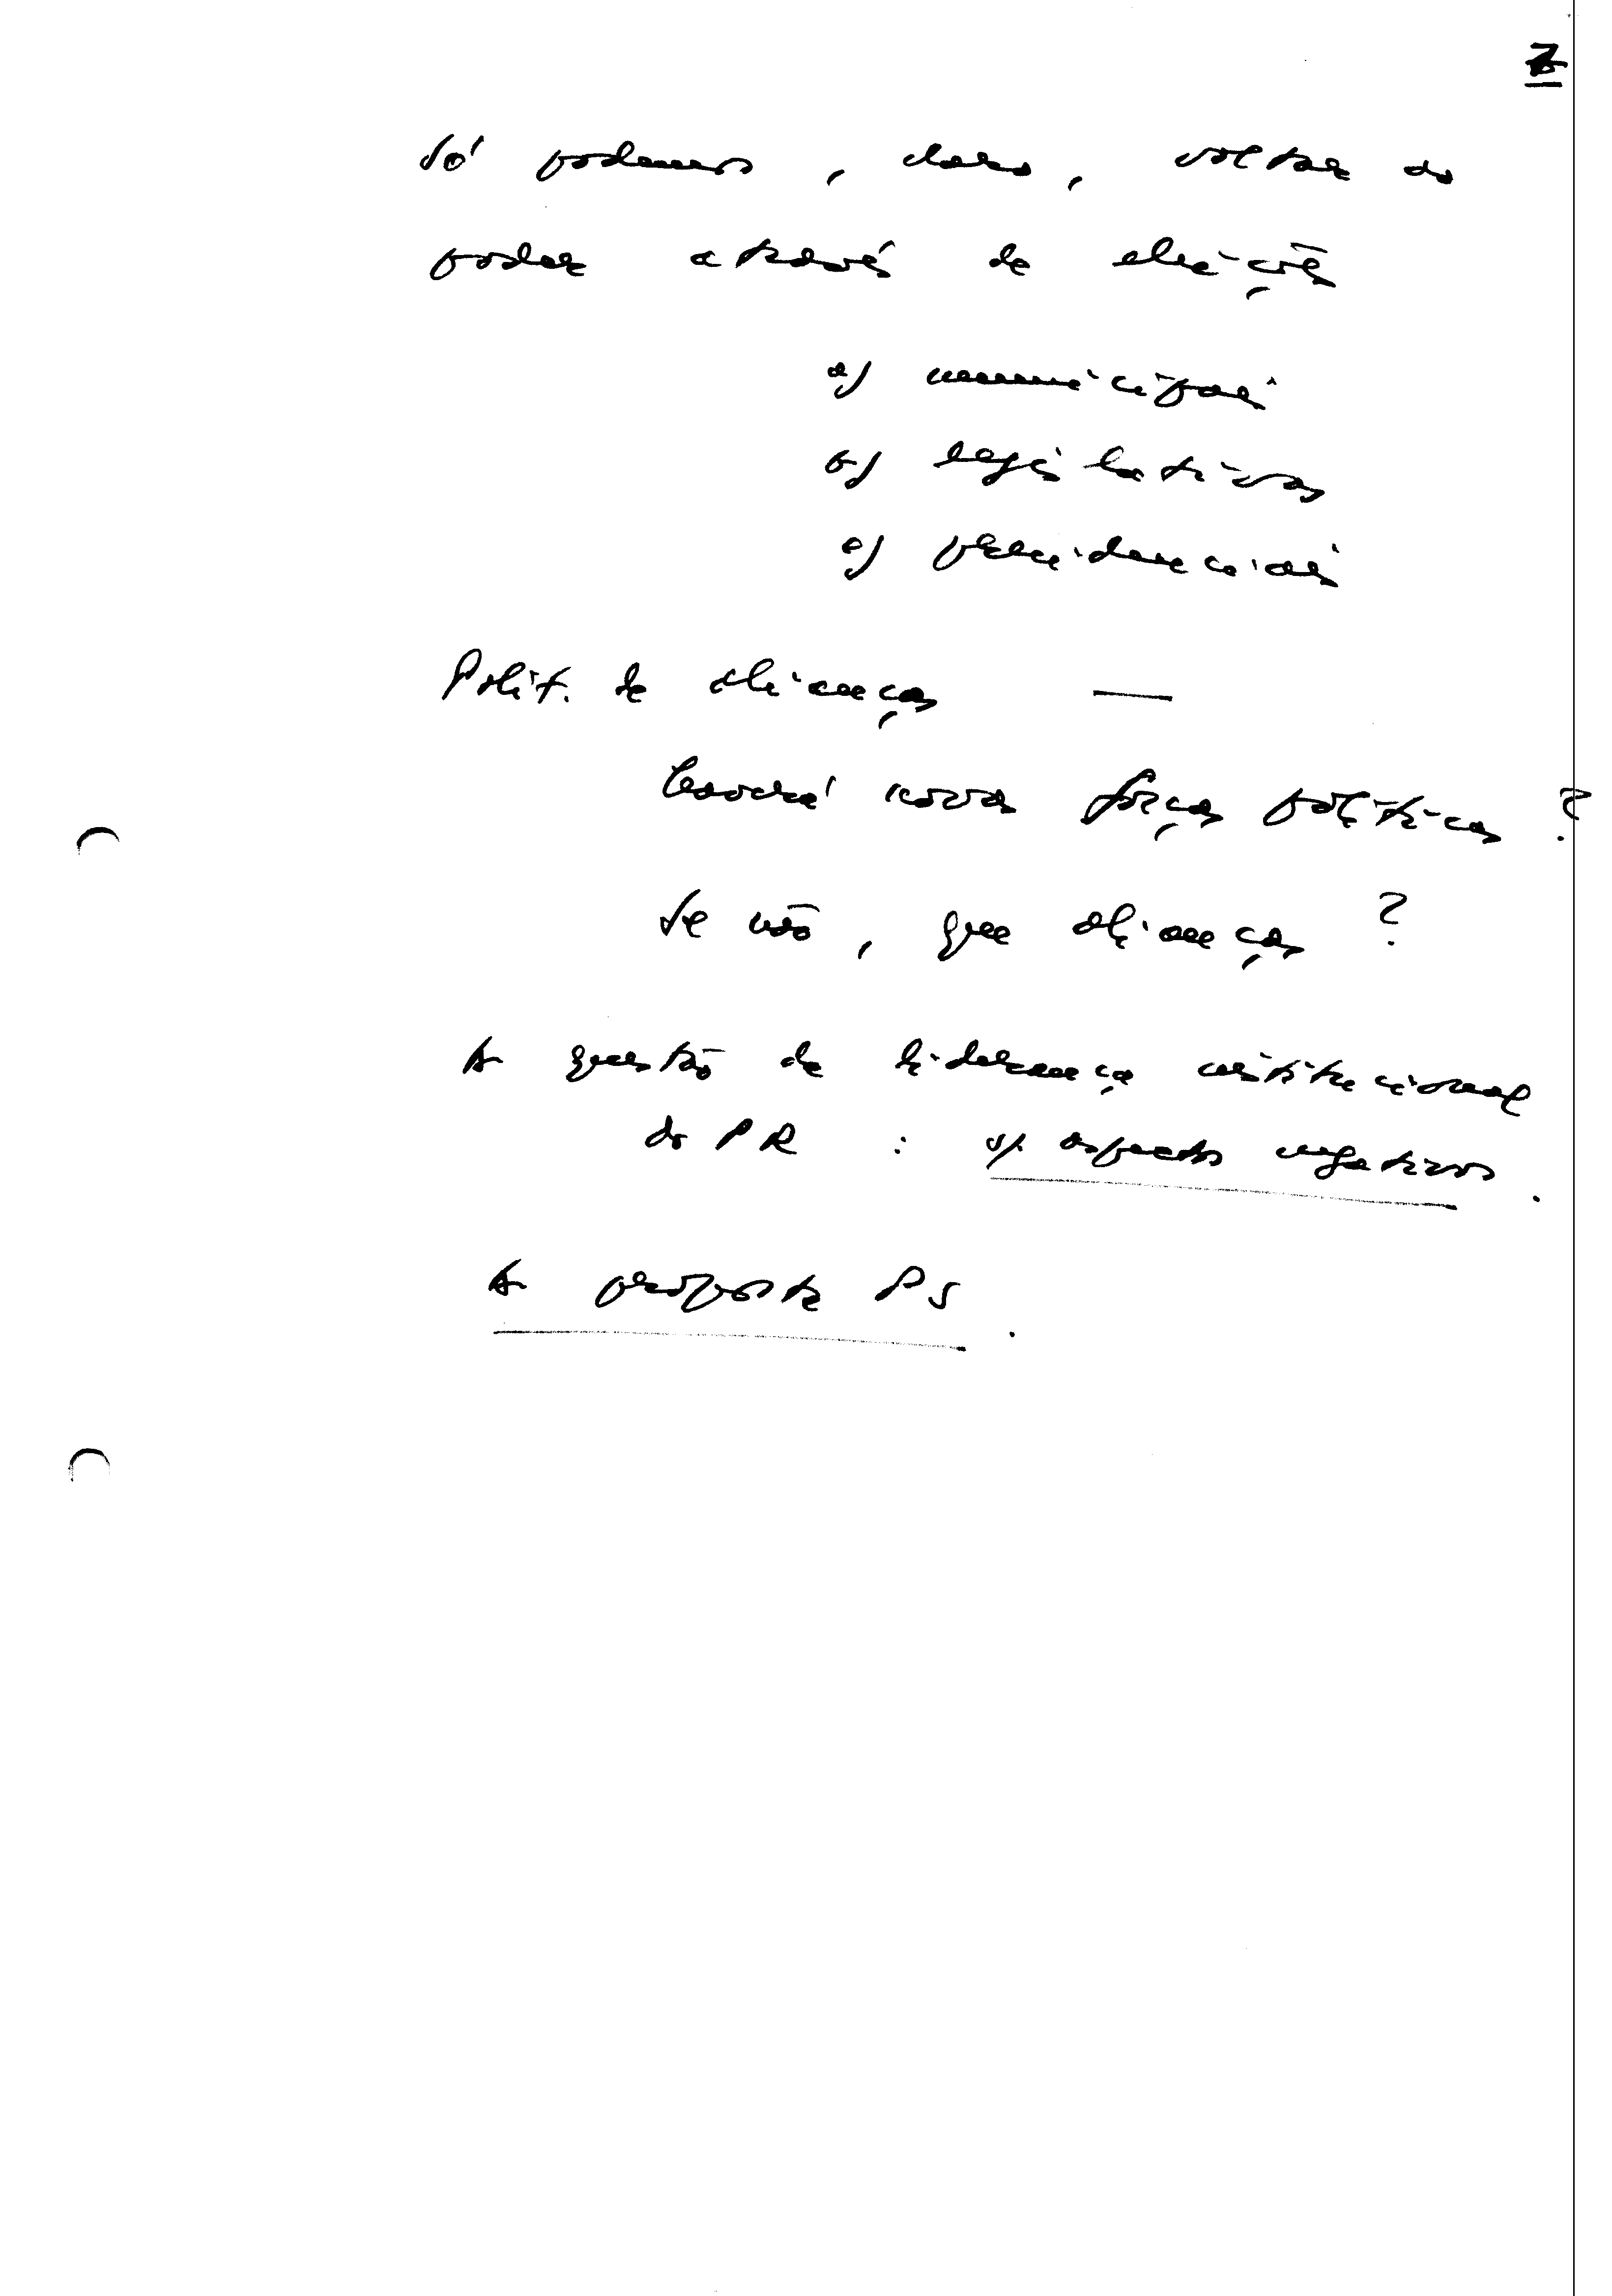 7
Só podemos, claro, voltar ao
poder através de eleições
a) municipais
b) legislativas
c) presidenciais
Polit. de alianças —
Haverá novas forças políticas?
Se não, que alianças?
A questão da liderança institucional
do PR : s/ aspectos negativos.
A proposta PS.